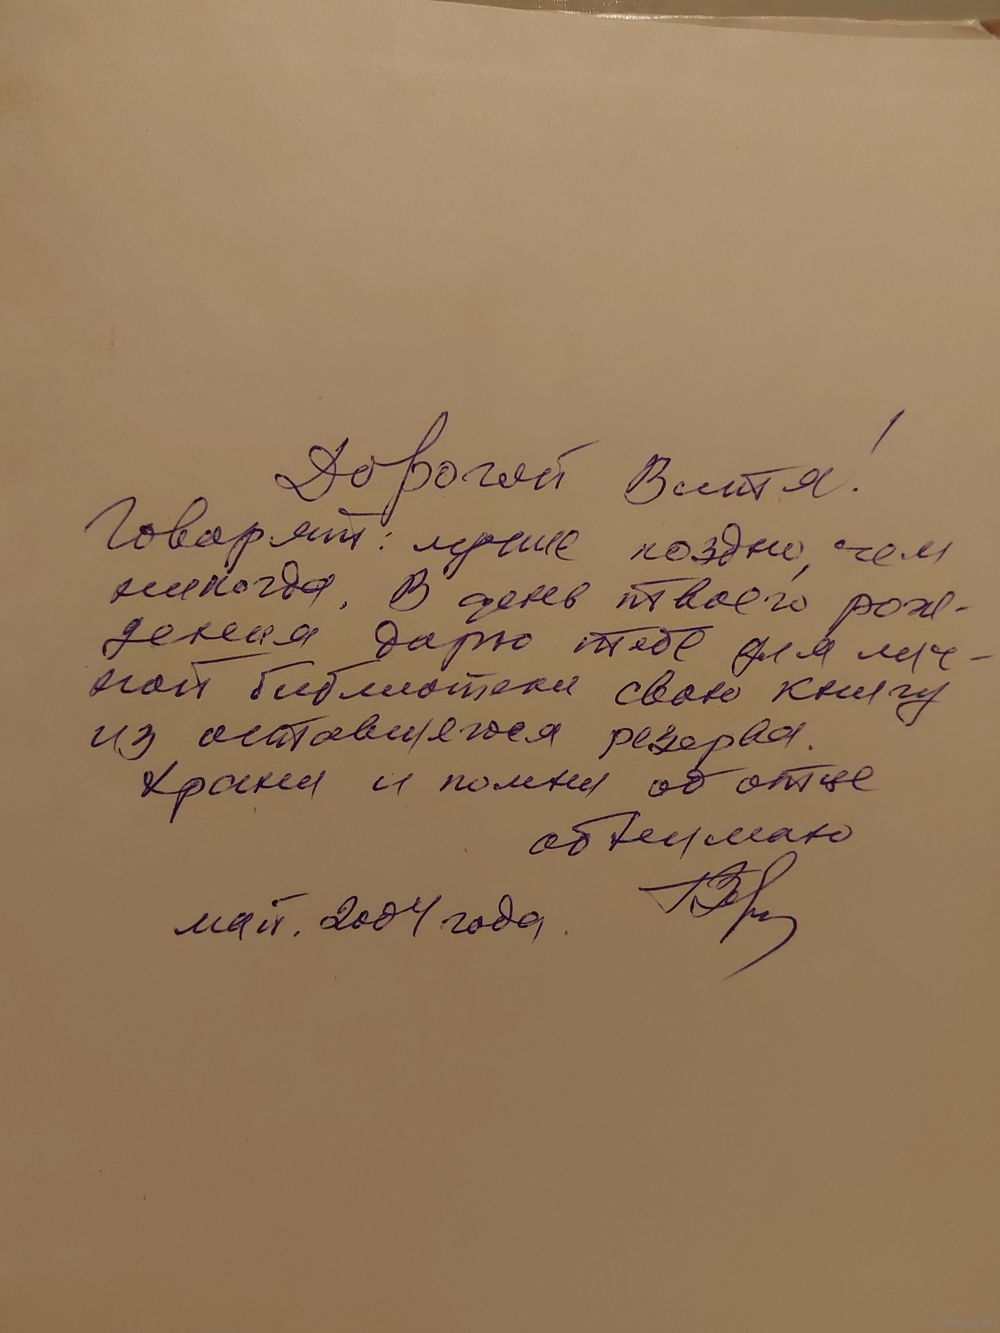 Дорогой Витя!
Говорят: лучше поздно, чем
никогда. В день твоего рож-
дения дарю тебе для лич-
ной библиотеки свою книгу
из оставшегося резерва.
Храни и помни об отце
обнимаю
май. 2004 года.